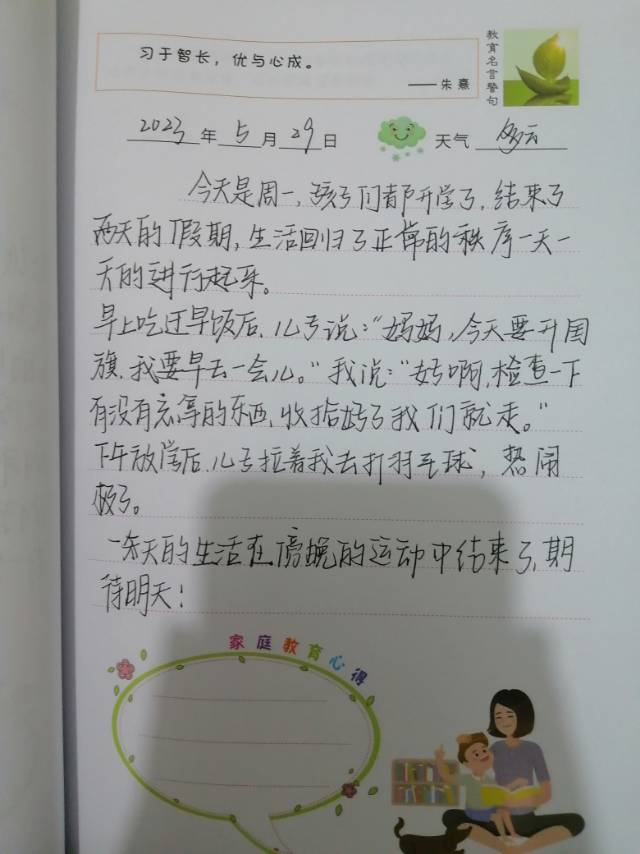 习于智长，优与心成。
——朱熹
教育名言警句
2023年5月29日 天气 多云
今天是周一,孩子们都开学了,结束了
两天的假期,生活回归了正常的秩序一天一
天的进行起来。
早上吃过早饭后,儿子说:“妈妈,今天要升国
旗,我要早去一会儿。”我说:“好啊,检查一下
有没有忘拿的东西,收拾好了我们就走。”
下午放学后,儿子拉着我去打羽毛球，热闹
极了。
一天的生活在傍晚的运动中结束了,期
待明天!
家庭教育心得